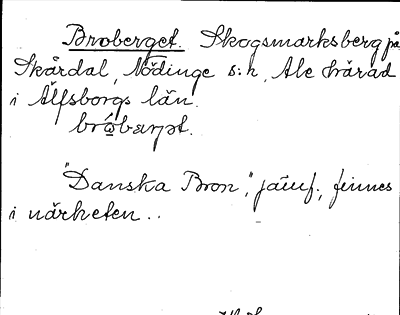 Broberget. Skogsmarksberg på
Skårdal, Nödinge s:n, Ale härad
i Älfsborgs län.
"Danska Bron", jämf., finnes
i närheten..